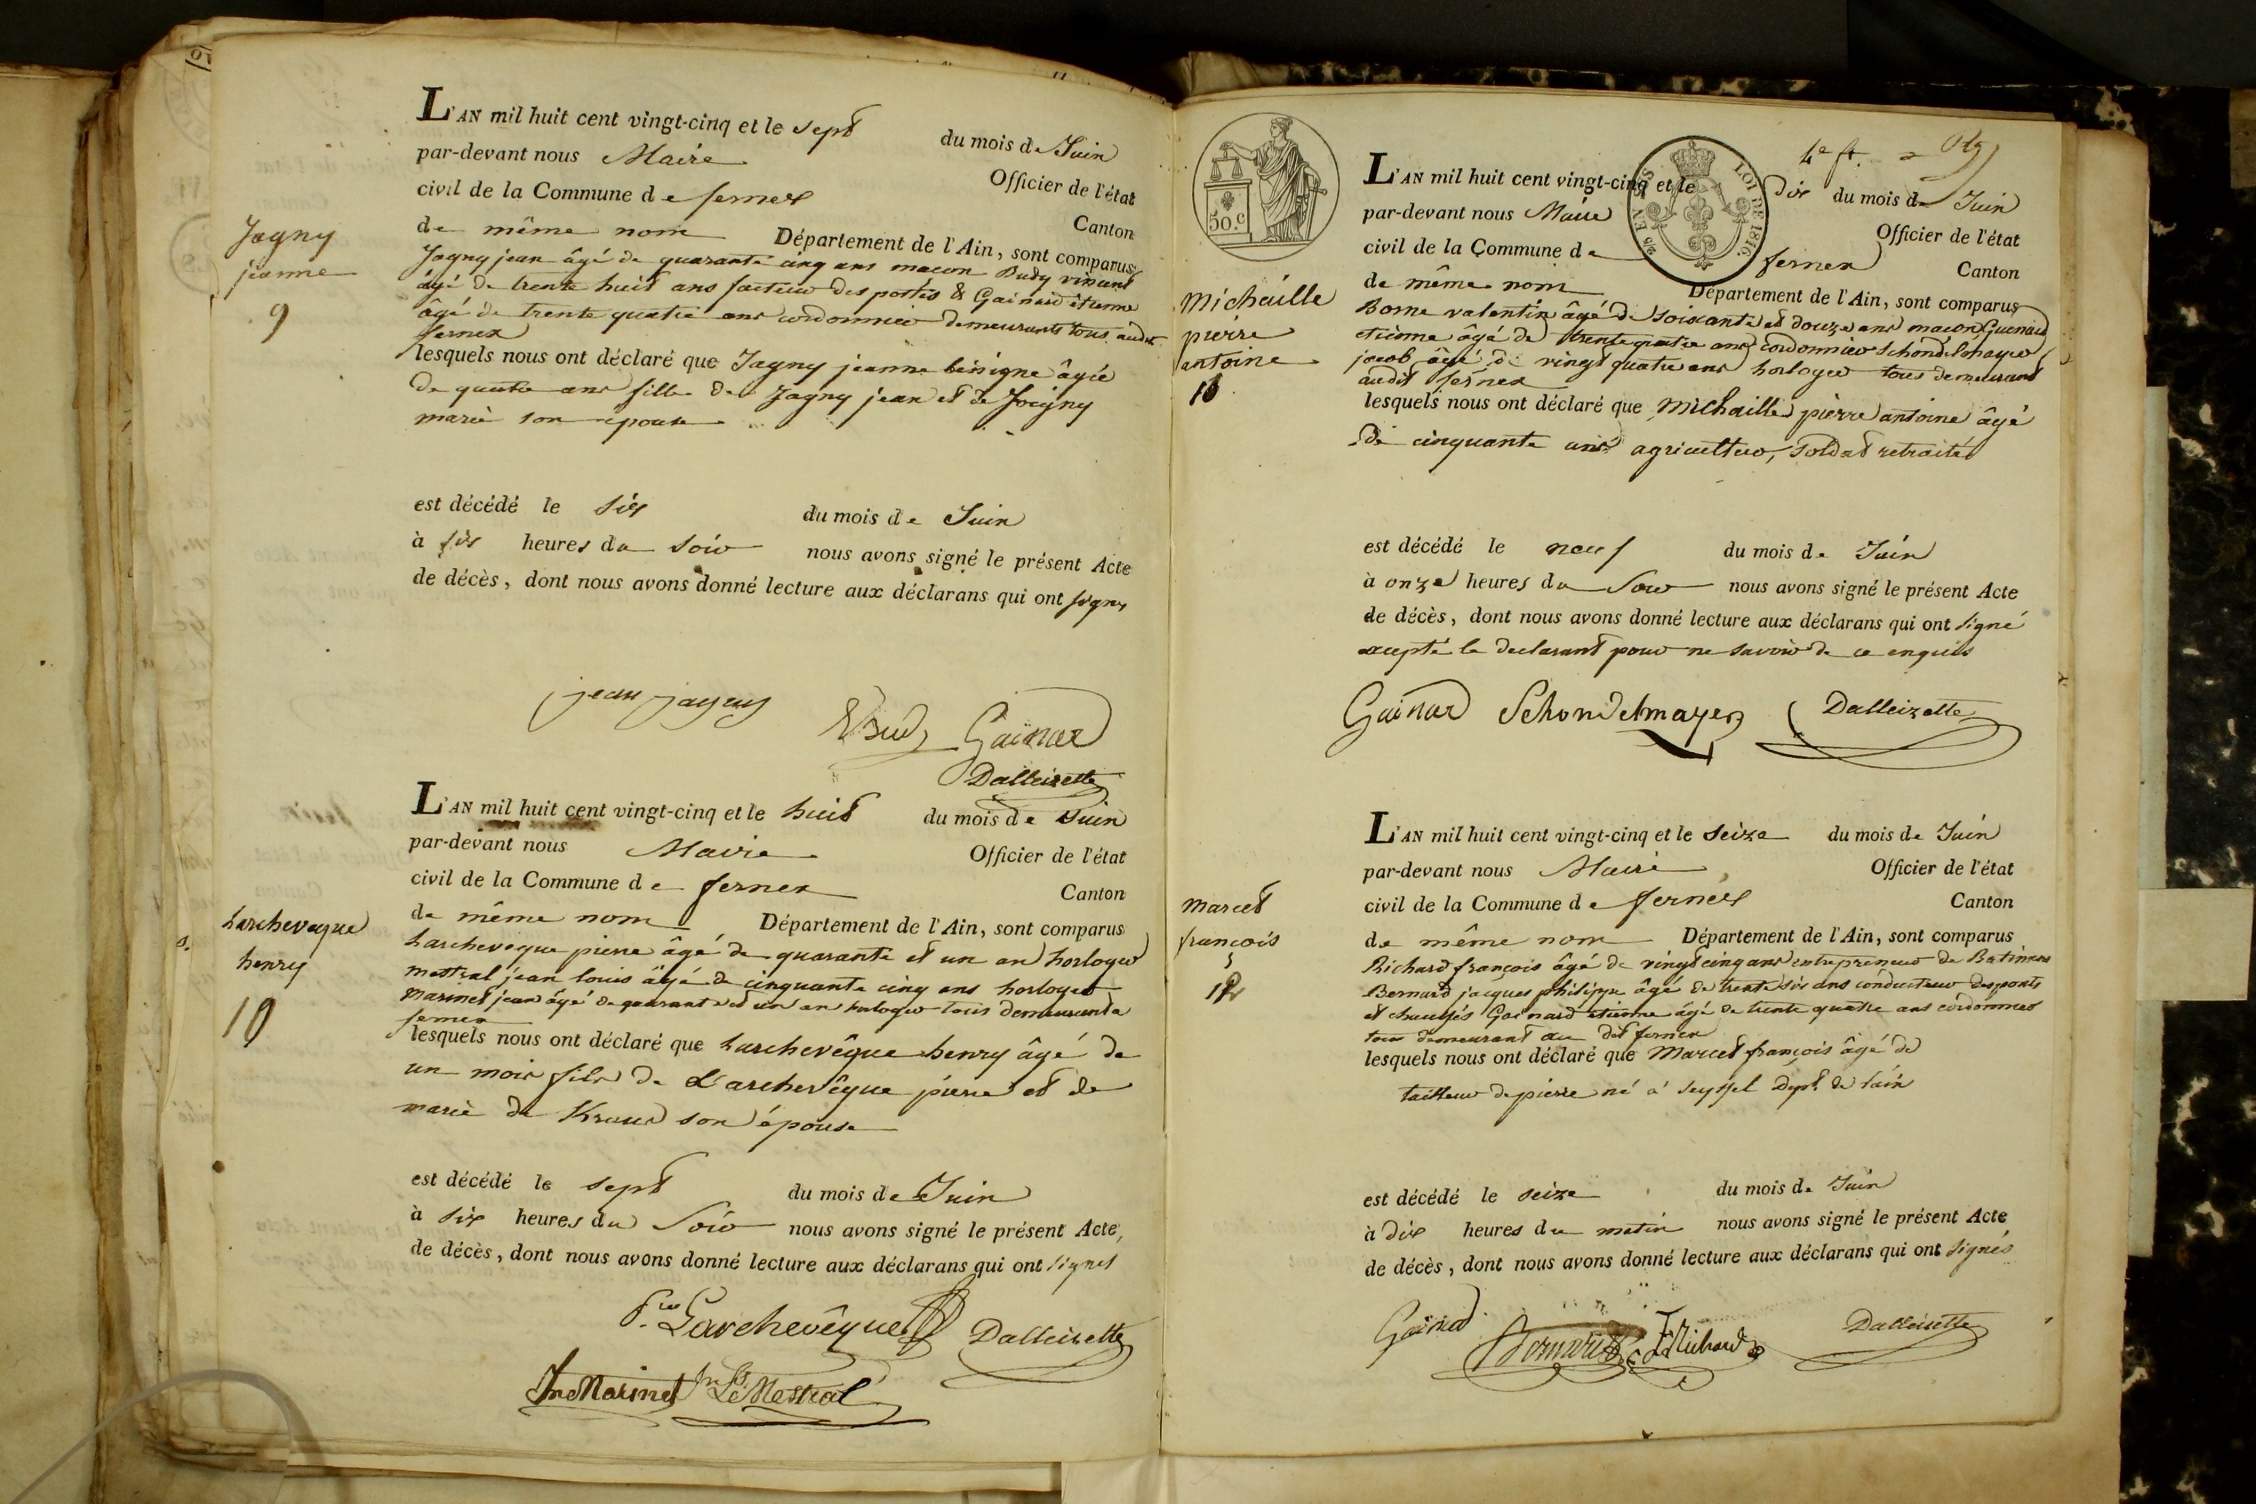 L'AN mil huit cent vingt-cinq et le sept du mois de Juin
par-devant nous Maire Officier de l'état
civil de la Commune de fernex Canton
de même nom Département de l'Ain, sont comparus
Jagny jean âgé de quarante cinq ans macon Budy vincent
âgé de trente huit ans facteur des postes & Gainard étienne
âgé de trente quatre ans cordonnier demeurants tous audit
fernex
Jagny
jeanne
9
lesquels nous ont déclaré que Jagny jeanne bénigne âgée
de quatre ans fille de Jagny jean et de
marie son épouse
est décédé le six du mois de Juin
à six heures du soir nous avons signé le présent Acte
de décès, dont nous avons donné lecture aux déclarans qui ont signés
jean jagny
Gainar
Dalleizette
L'AN mil huit cent vingt-cinq et le huit du mois de Juin
par-devant nous Maire Officier de l'état
civil de la Commune de fernex Canton
de même nom Département de l'Ain, sont comparus
Larcheveque
henry
10
Larcheveque pierre âgé de quarante et un an horloger
mestral jean louis âgé de cinquante cinq ans horloger
marinet jean âgé de quarante et un an horloger tous demeurant a
fernex
lesquels nous ont déclaré que Larchevêque henry âgé de
un mois fils de L'archevêque pierre et de
marie de Kraus son épouse
est décédé le sept du mois de Juin
à six heures du Soir nous avons signé le présent Acte
de décès, dont nous avons donné lecture aux déclarans qui ont signés
Larchevêque Dalleizette
Jn Marinet Jn Ls Le Mestral
50. c
LOI DE 1816.
L'AN mil huit cent vingt-cinq et le dix du mois de Juin
par-devant nous Maire Officier de l'état
civil de la Commune de fernex Canton
de même nom Département de l'Ain, sont comparus
michaille
pierre
antoine
Borne valentin âgé de soixante et douze ans macon Guenard
etienne âgé de trente quatre ans cordonnier Schondelmayer
jacob âgé de vingt quatre ans horloger tous demeurant
audit fernex
lesquels nous ont déclaré que michaille pierre antoine âgé
de cinquante ans agriculteur, soldat retraité
est décédé le neuf du mois de Juin
à onze heures du Soir nous avons signé le présent Acte
de décès, dont nous avons donné lecture aux déclarans qui ont signé
excepté le declarant pour ne savoir de ce enquis
Gainar Schondelmayer Dalleizette
L'AN mil huit cent vingt-cinq et le seize du mois de Juin
par-devant nous Maire Officier de l'état
civil de la Commune de fernex Canton
de même nom Département de l'Ain, sont comparus
marcet
françois
12
Richard françois âgé de vingt cinq ans entrepreneur de Batimens
Bernard jacques philippe âgé de trente six ans conducteur des ponts
et chaussés Gainard etienne âgé de trente quatre ans cordonnier
tous demeurant au dit fernex
lesquels nous ont déclaré que Marcet françois âgé de
tailleur de pierre né a seyssel Dept. de l'ain
est décédé le seize du mois de Juin
à dix heures du matin nous avons signé le présent Acte
de décès, dont nous avons donné lecture aux déclarans qui ont signés
Gainard Bernard F Richard Dalleizette